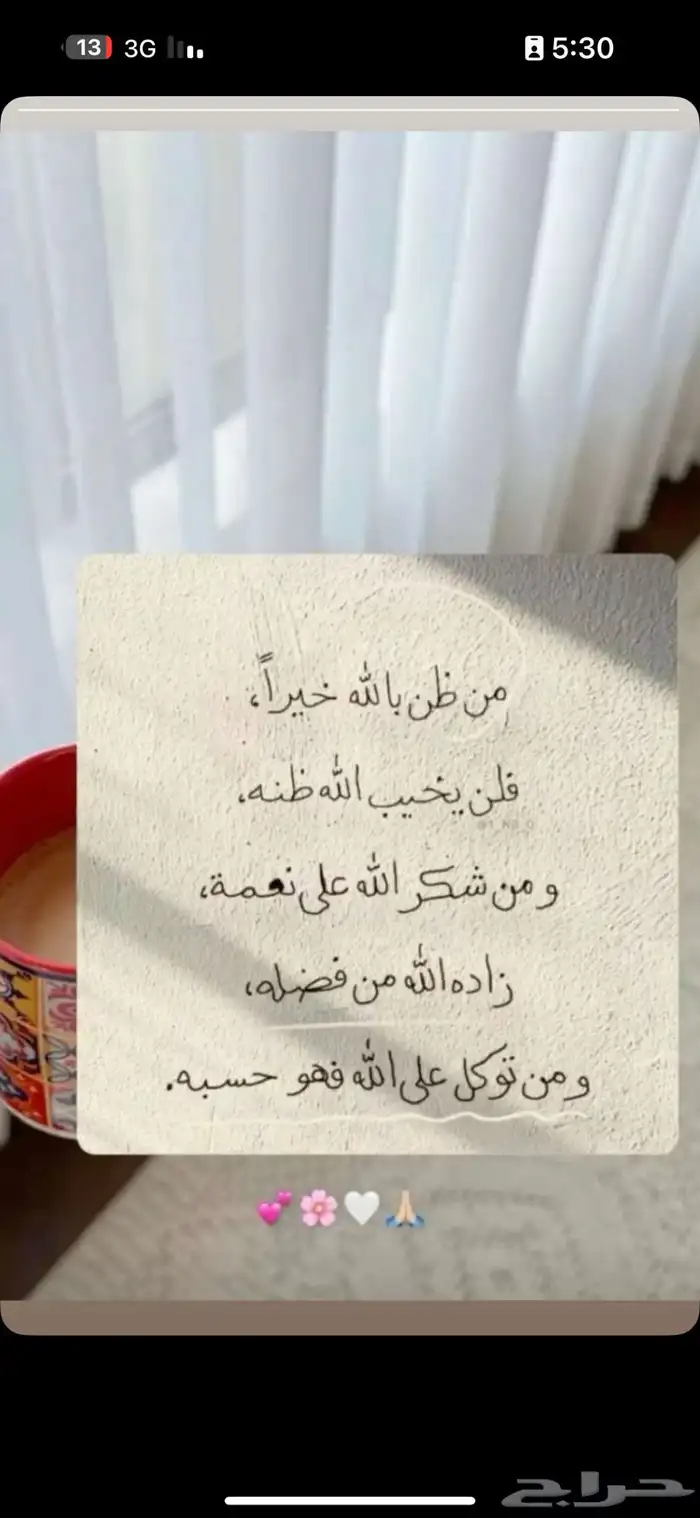 13 3G 5:30
من ظن بالله خيراً،
فلن يخيب الله ظنه،
و من شكر الله على نعمة،
زاده الله من فضله،
و من توكل على الله فهو حسبه.
💕🌸🤍🙏🏼
حراج